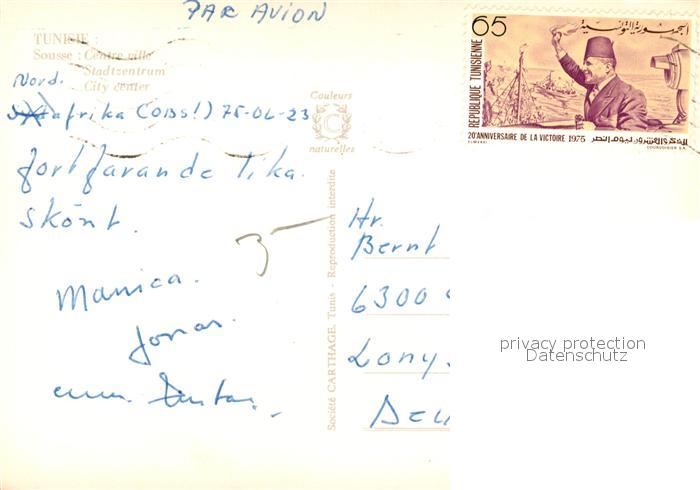 PAR AVION
TUNISIE :
Sousse : Centre ville
Stadtzentrum
City center
Nord.
afrika (OBS!) 75-06-23
fortfarande lika
skönt.
Manica.
Jonas.
Couleurs
C
naturelles
Société CARTHAGE. Tunis - Reproduction interdite
65
الجمهورية التونسية
REPUBLIQUE TUNISIENNE
20e ANNIVERSAIRE DE LA VICTOIRE 1975
الذكرى العشرون ليوم النصر
Hr.
Bernt
6300
privacy protection
Datenschutz